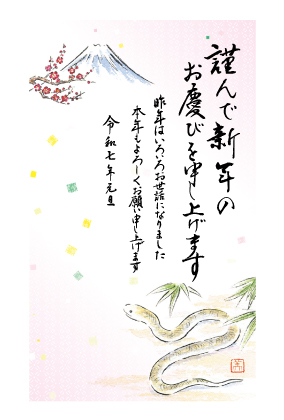 謹んで新年の
お慶びを申し上げます
昨年はいろいろお世話になりました
本年もよろしくお願い申し上げます
令和七年元旦